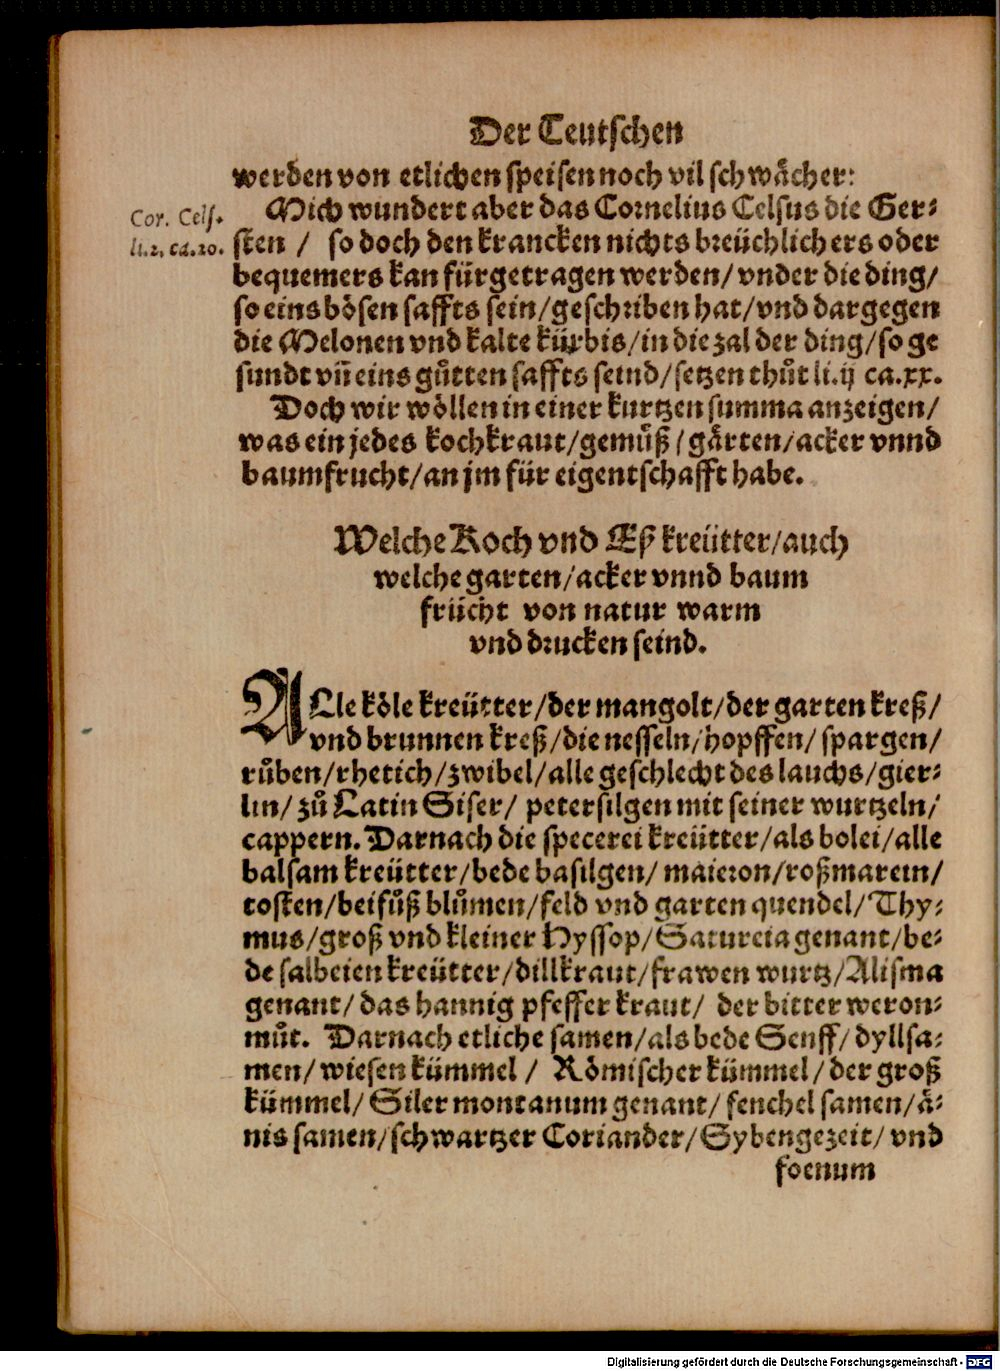 Der Teutschen
werden von etlichen speisen noch vil schwächer:
Mich wundert aber das Cornelius Celsus die Ger-
Cor. Cels.
li.2. ca.20.
sten / so doch den krancken nichts breüchlichers oder
bequemers kan fürgetragen werden/ vnder die ding/
so eins bösen saffts sein/geschriben hat/vnd dargegen
die Melonen vnd kalte kürbis/in die zal der ding/so ge
sundt vñ eins gůtten saffts seind/setzen thůt li.ij ca.xx.
Doch wir wöllen in einer kurtzen summa anzeigen/
was ein jedes kochkraut/gemůß/gärten/acker vnnd
baumfrucht/an jm für eigentschafft habe.
Welche Koch vnd Eß kreütter/auch
welche garten/acker vnnd baum
frücht von natur warm
vnd drucken seind.
ALle köle kreütter/der mangolt/der garten kreß/
vnd brunnen kreß/die nesseln/hopffen/spargen/
růben/rhetich/zwibel/alle geschlecht des lauchs/gier-
lin/ zů Latin Siser/ petersilgen mit seiner wurtzeln/
cappern. Darnach die specerei kreütter/als bolei/alle
balsam kreütter/bede basilgen/ maieron/roßmarein/
tosten/beifůß blůmen/feld vnd garten quendel/Thy-
mus/groß vnd kleiner Hyssop/Satureia genant/be-
de salbeien kreütter/dillkraut/frawen wurtz/Alisma
genant/ das hannig pfeffer kraut/ der bitter weron-
můt. Darnach etliche samen/als bede Senff/dyllsa-
men/wiesen kümmel / Römischer kümmel/der groß
kümmel/ Siler montanum genant/ fenchel samen/ä-
nis samen/schwartzer Coriander/Sybengezeit/ vnd
foenum
Digitalisierung gefördert durch die Deutsche Forschungsgemeinschaft - DFG